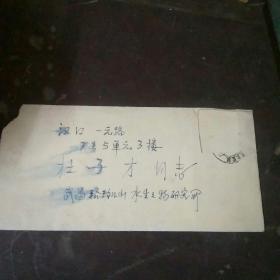 汉口 一元路
7号5单元3楼
杜子才同志
武昌珞珈山水生生物研究所